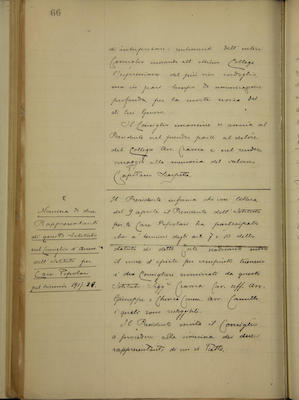 66
di interpretare i sentimenti dell'intero
Consiglio inviando all'
l'espressione del più vivo cordoglio,
ma in pari tempo di ammirazione
profonda per la morte eroica del
di lui Genero.
Il Consiglio unanime si associa al
Presidente nel prender parte al dolore
del Collega Avv. e nel render
omaggio alla memoria del valoroso
Capitano
Nomina di due
Rappresentanti
di questo Istituto
nel Consiglio d'Amm.
dell'Istituto per
Case Popolari
pel triennio
Il Presidente informa che con lettera
del 9 aprile il Presidente dell'Istituto
per le Case Popolari ha partecipato
che a termini degli art. 7 e 13 dello
statuto di detto Ente
il mese d'aprile per compiuto triennio
i due Consiglieri nominati da questo
Istituto Sigg. Avv.
Giuseppe e Avv. Camillo
i quali sono rieleggibili.
Il Presidente invita il Consiglio
a procedere alla nomina dei due
rappresentanti di cui si tratta.